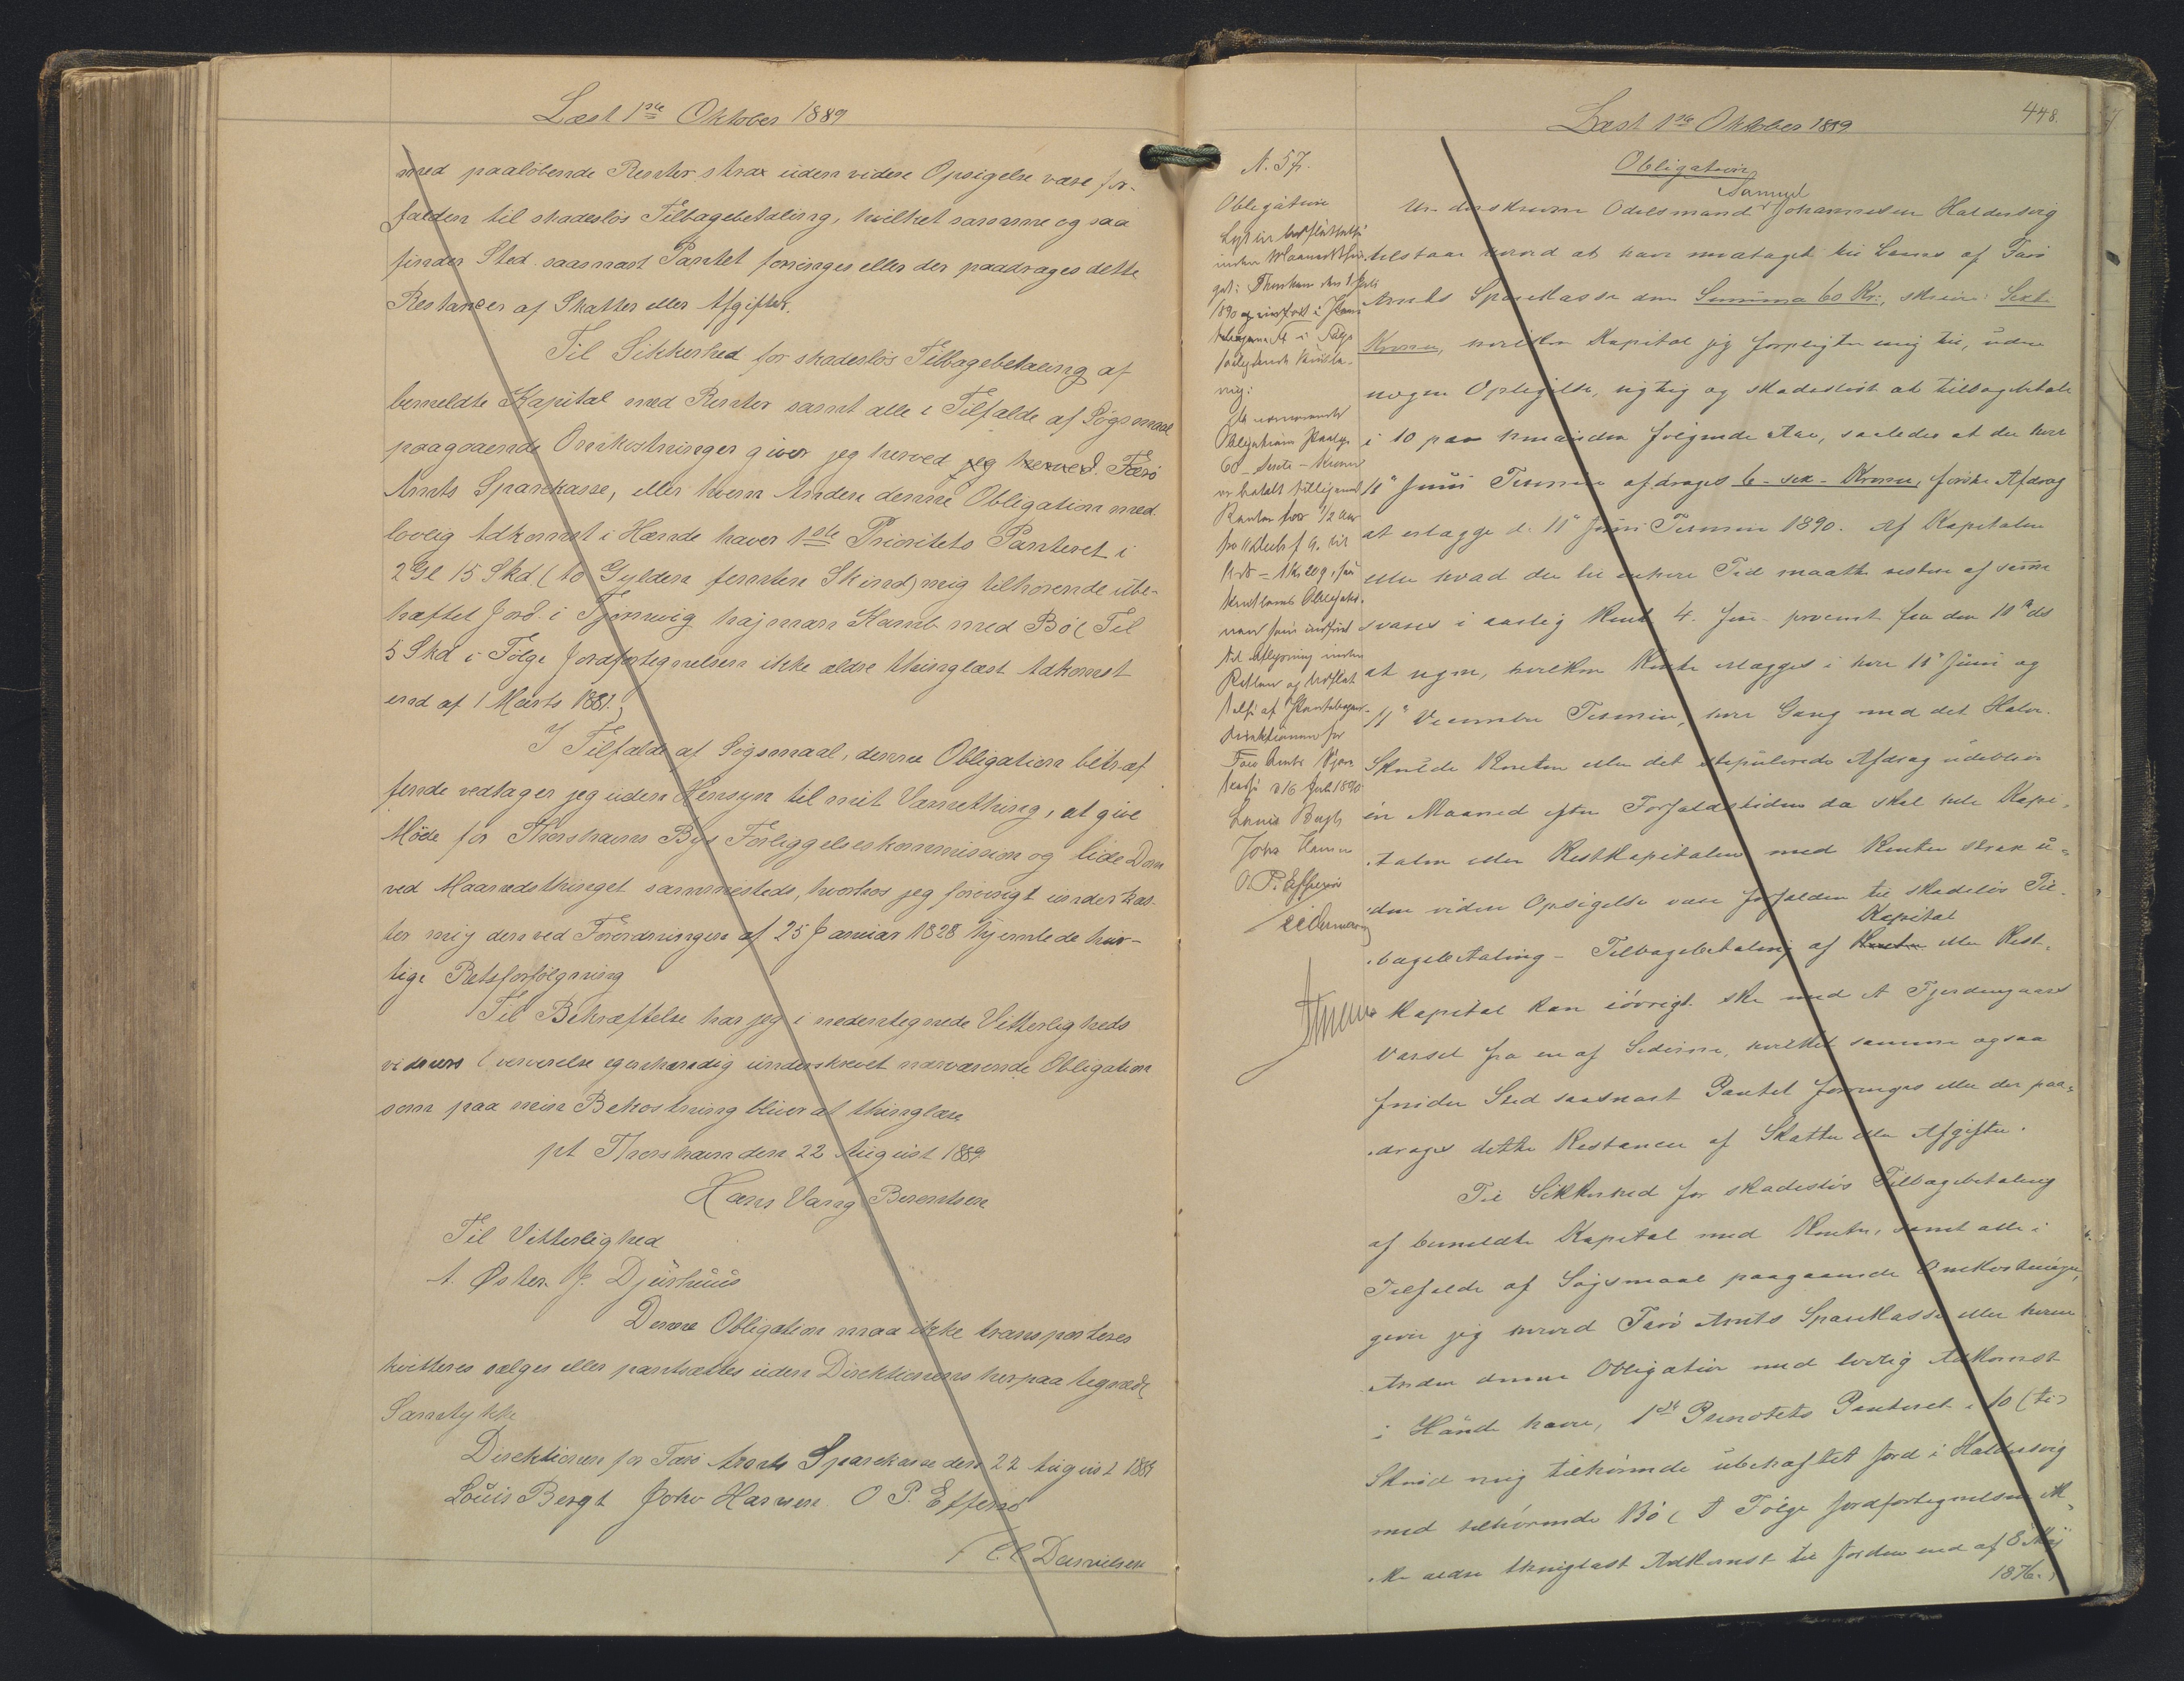 Læst 1ste Oktober 1889
med paaløbende Renter strax uden videre Opsigelse være for-
falden til skadesløs Tilbagebetaling, hvilket samme og saa
finder Sted saasnart Pantet forringes eller der paadrages dette
Restancer af Skatter eller Afgifter.
Til Sikkerhed for skadesløs Tilbagebetaling af
bemeldte Kapital med Renter samt alle i Tilfælde af Søgsmaal
paagaaende Omkostninger giver jeg herved jeg herved Færø
Amts Sparekasse, eller hvem Anden denne Obligation med
lovlig Adkomst i Hænde haver 1ste Prioritets Panteret i
2 Gl 15 Skd (to Gylden femten Skind) mig tilhørende ube-
hæftet Jord i Tjørnevig hajman Kamb med Bø (Til
5 Skd i Følge Jordfortegnelsen ikke ældre thinglæst Adkomst
end af 1 Marts 1881.)
I Tilfælde af Søgsmaal, denne Obligation betræf
fende vedtager jeg uden Hensyn til mit Værnething, at give
Møde for Thorshavns Byes Forliggelseskommission og lide Dom
ved Maanedsthinget sammesteds, hvorhos jeg forøvrigt underkas-
ter mig den ved Forordningen af 25 Januar 1828 hjemlede hur-
tige Retsforfølgning
Til Bekræftelse har jeg i nedentegnede Vitterligheds
vidners Overværelse egenhændig underskrevet nærværende Obligation
som paa min Bekostning bliver at thinglæse
pt Thorshavn den 22 August 1889
Hans Vang Berentsen
Til Vitterlighed
A. Øster. J. Djurhuus
Denne Obligation maa ikke transporteres
kvitteres sælges eller pantsættes uden Direktionens herpaa tegnede
Samtykke
Direktionen for Færø Amts Sparekasse den 22 August 1889
Louis Bergh Johs Hansen O P. Effersø
/ C C Danielsen
Læst 1ste Oktober 1889
448.
N. 57.
Obligation
Lyst
inden Maanedsthin
get i Thorshavn den 1 Juli
1890 og indført i Pante
følgende Kvitte-
ring:
Obligations Paalyd
60 - sexti - Kroner
er betalt tilligemed
Renten for 1/2 Aar
til Aflysning inden
Retten og Udslet
telse af Pantebogen.
Direktionen for
Færø Amts Spare
kasse d 16 Juli 1890
Louis Bergh
Johs Hansen
O. P. Effersøe
/ CC Danielsen
Obligation
Samuel
Underskrevne Odelsmand Johannesen Haldersvig
tilstaar herved at have modtaget til Laans af Færø
Amts Sparekasse den Summa 60 Kr:, skriver: Sexti
Kroner, hvilken Kapital jeg forpligter mig til, uden
nogen Opsigelse, rigtig og skadesløst at tilbagebetale
i 10 paa hinanden følgende Aar, saaledes at der hver
11te Juni Termin afdrages 6 - sex - Kroner, første Afdrag
at erlægge d. 11te Juni Termin 1890. Af Kapitalen
eller hvad der til enhver Tid maatte restere af samme
svares i aarlig Rente 4. fire procent fra den 11te ds
at regne, hvilken Rente erlægges i hver 11te Juni og
11te December Termin, hver Gang med det Halve.
Skulde Renten eller det stipulerede Afdrag udeblive
en Maaned efter Forfaldstiden da skal hele Kapi-
talen eller Restkapitalen med Renter strax u-
den videre Opsigelse være forfalden til skadesløs Til-
Kapital
bagebetaling - Tilbagebetaling af Renter eller Rest-
Kapital kan iøvrigt ske med et Fjerdingaars
Varsel fra en af Siderne, hvilket samme ogsaa
finder Sted saasnart Pantet forringes eller der paa-
drages dette Restancer af Skatter eller Afgifter.
Til Sikkerhed for skadesløs Tilbagebetaling
af bemeldte Kapital med Renter, samt alle i
Tilfælde af Søgsmaal paagaaende Omkostninger,
giver jeg herved Færø Amts Sparekasse eller hvem
Anden denne Obligation med lovlig Adkomst
i Hænde haver, 1ste Prioritets Panteret i 10 (ti)
Skind mig tilhørende ubehæftet Jord i Haldersvig
med tilhørende Bø (I Følge Jordfortegnelsen ik
ke ældre thinglæst Adkomst til Jorden end af 8 Maj
1876.)